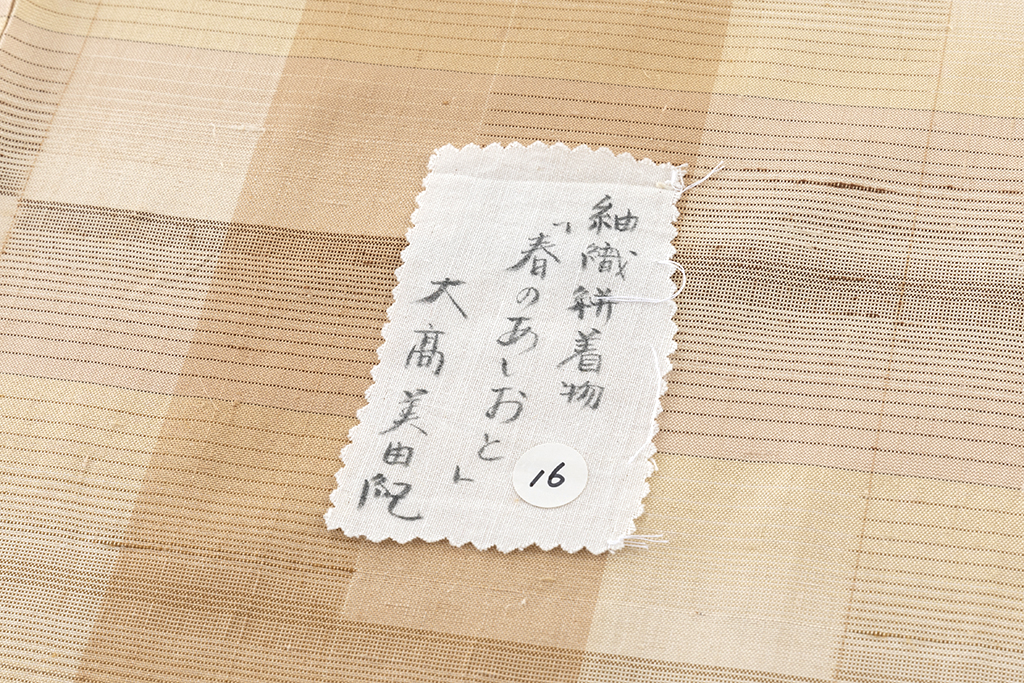 紬織絣着物
「春のあしおと」
大髙美由紀
16